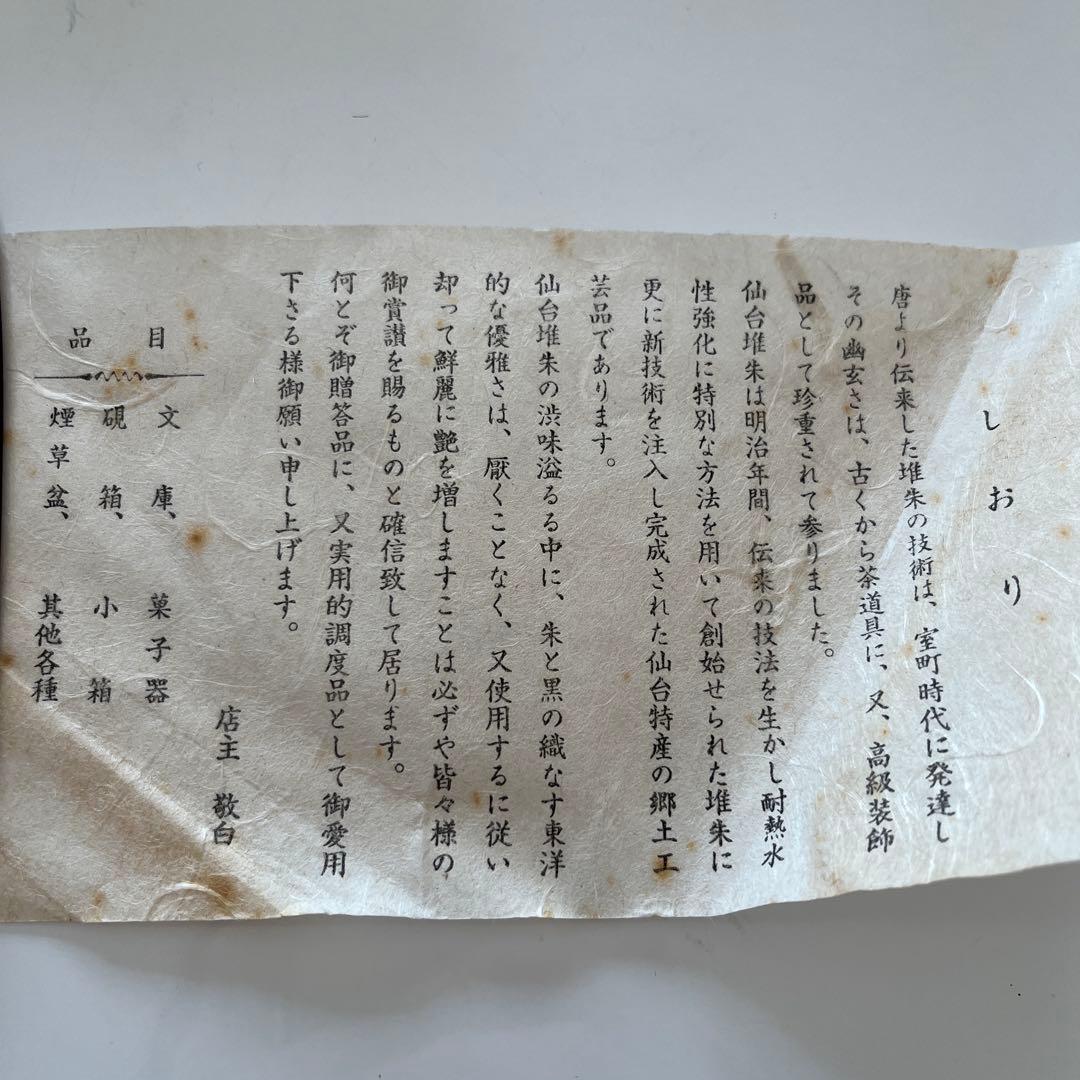 しおり
唐より伝来した堆朱の技術は、室町時代に発達し
その幽玄さは、古くから茶道具に、又、高級装飾
品として珍重されて参りました。
仙台堆朱は明治年間、伝来の技法を生かし耐熱水
性強化に特別な方法を用いて創始せられた堆朱に
更に新技術を注入し完成された仙台特産の郷土工
芸品であります。
仙台堆朱の渋味溢るる中に、朱と黒の織なす東洋
的な優雅さは、厭くことなく、又使用するに従い
却って鮮麗に艶を増しますことは必ずや皆々様の
御賞讃を賜るものと確信致して居ります。
何とぞ御贈答品に、又実用的調度品として御愛用
下さる様御願い申し上げます。
店主 敬白
品目
文庫、菓子器
硯箱、小箱
煙草盆、其他各種